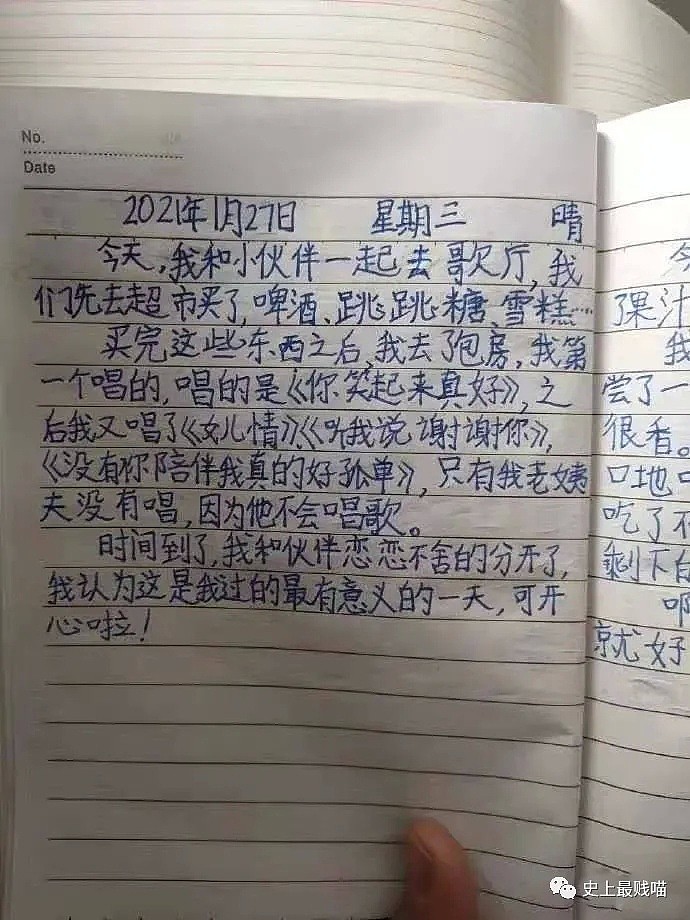 No.
Date
2021年1月27日 星期三 晴
今天,我和小伙伴一起去歌厅,我
们先去超市买了,啤酒、跳跳糖、雪糕……
买完这些东西之后,我去了包房,我第
一个唱的,唱的是《你笑起来真好》,之
后我又唱了《女儿情》、《听我说谢谢你》,
《没有你陪伴我真的好孤单》,只有我老姨
夫没有唱,因为他不会唱歌。
时间到了,我和伙伴恋恋不舍的分开了,
我认为这是我过的最有意义的一天,可开
心啦!
今
了果汁
我
尝了一
很香。
口地口
吃了不
剩下白
啊
就好
史上最贱喵